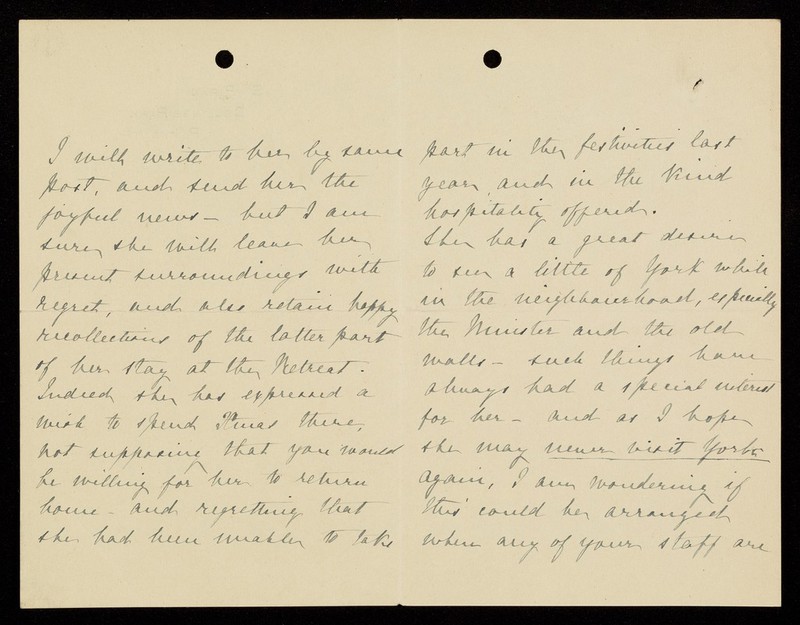 I will write to her by same
post, and send her the
joyful news – but I am
sure she will leave her
present surroundings with
regret, and also retain happy
recollections of the latter part
of her stay at the Retreat.
Indeed she has expressed a
wish to spend Xmas there,
not supposing that you would
be willing for her to return
home – and regretting that
she had been unable to take
part in the festivities last
year, and in the kind
hospitality offered.
She has a great desire
to see a little of York while
in the neighbourhood, especially
the Minster and the old
walls – such things have
always had a special interest
for her – and as I hope
she may never visit York
again, I am wondering if
this could be arranged
when any of your staff are